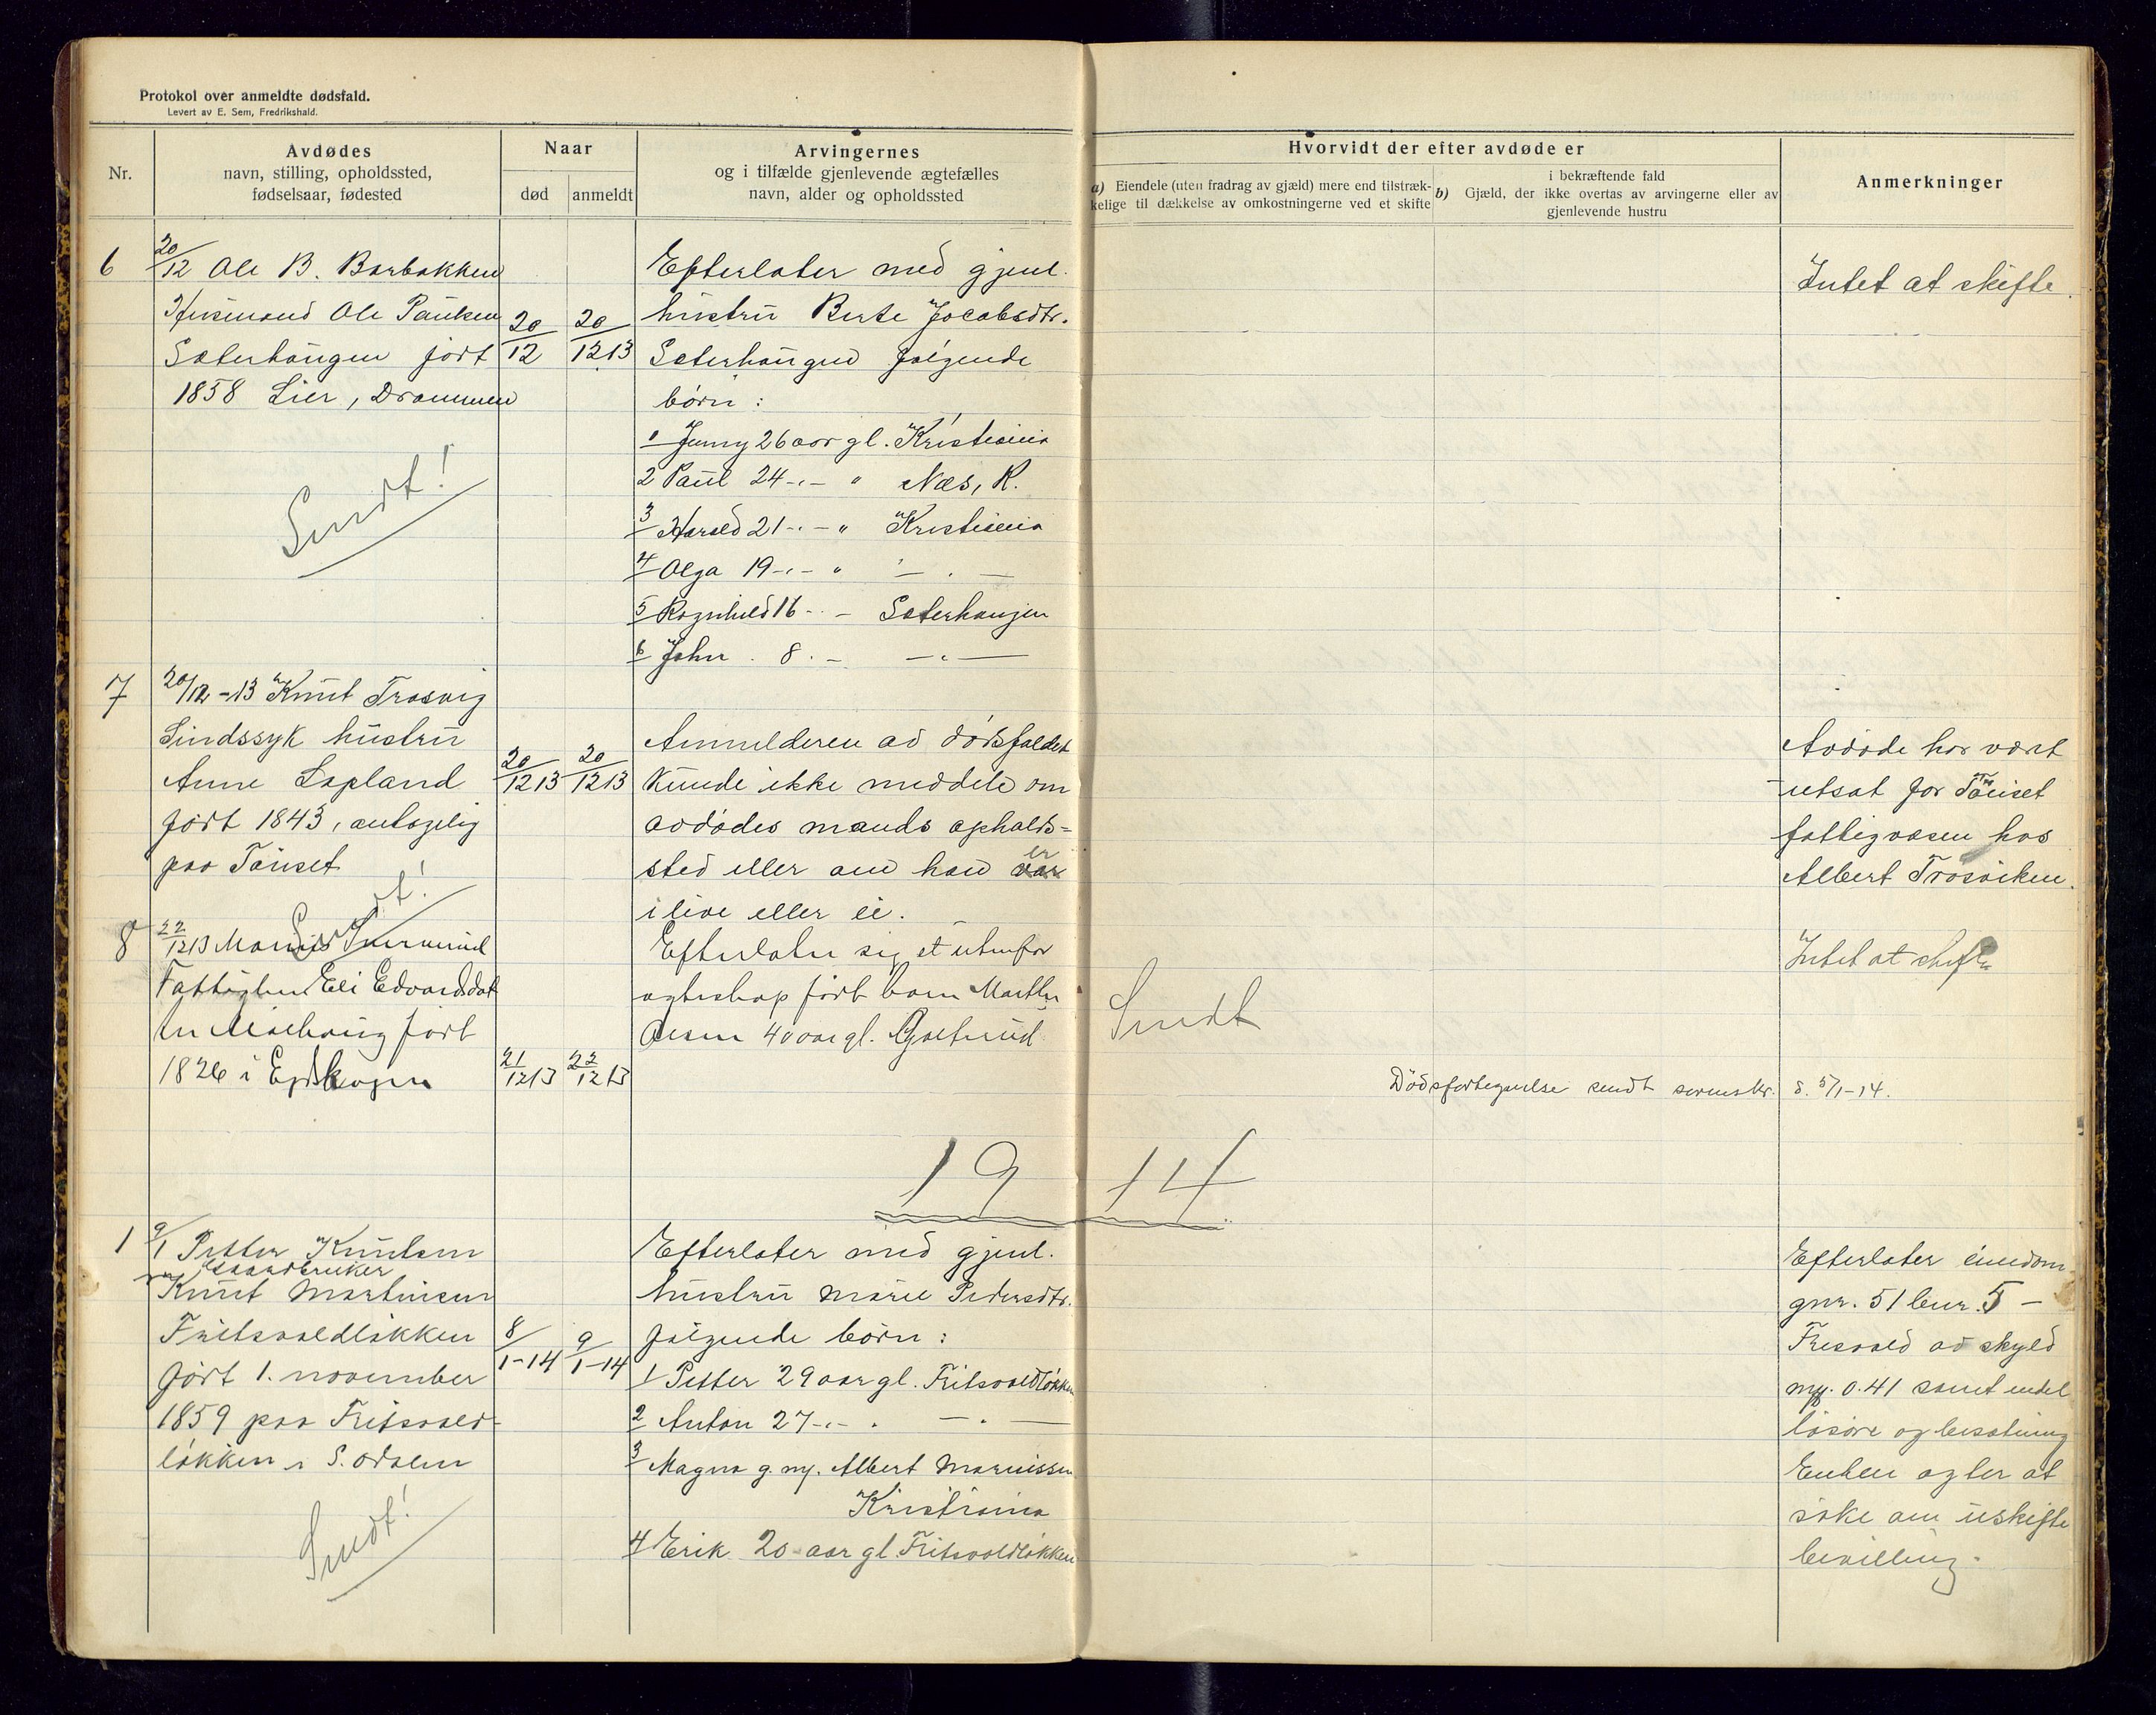 Protokol over anmeldte dødsfald.
Levert av E. Sem, Fredrikshald.
Nr.
Avdødes
navn, stilling, opholdssted,
fødselsaar, fødested
Naar
død
anmeldt
Arvingernes
og i tilfælde gjenlevende ægtefælles
navn, alder og opholdssted
Hvorvidt der efter avdøde er
a) Eiendele (uten fradrag av gjæld) mere end tilstræk-
kelige til dækkelse av omkostningerne ved et skifte
i bekræftende fald
b) Gjæld, der ikke overtas av arvingerne eller av
gjenlevende hustru
Anmerkninger
6
20/12 Ole B. Borbakken
Husmand Ole Paulsen
Sæterhaugen født
1858 Lier, Drammen
Sendt!
20/12
20/12 13
Efterlater med gjenl.
hustru Berte Jocobsdtr.
Sæterhaugen følgende
børn:
1 Jenny 26 aar gl. Kristiania
2 Paul 24 -"- " Næs, R.
3 Harald 21 -"- " Kristiania
4 Olga 19 -"- " -"-
5 Ragnhild 16 -"- Sæterhaugen
6 John . 8 . - -"-
Intet at skifte.
7
20/12-13 Knut Trosvig
Sindssyk hustru
Anne Lapland
født 1843, antagelig
paa Tønset
Sendt!
20/12 13
20/12 13
Anmelderen av dødsfaldet
kunde ikke meddele om
avdødes mands opholds=
sted eller om han er
ilive eller ei.
Avdøde har vært
utsat for Tønset
fattigvæsen hos
Albert Trosviken.
8
22/12 13
Eli Edvardsdat
ter født
1826 i
21/12 13
22/12 13
Efterlater sig et utenfor
egteskap født barn
40 aar gl.
Sendt
Intet at skifte
Dødsfortegnelse sendt sorenskr. d. 5/1-14.
19 14
1
9/1 Petter Knutsen
Gaardbruker
Knut Martinsen
Fritsvoldløkken
født 1. november
1859 paa Fritsvold-
løkken i S. Odalen
Sendt!
8/1-14
9/1-14
Efterlater med gjenl.
hustru Marie Pedersdtr.
følgende børn:
1 Petter 29 aar gl. Fritsvoldløkken
2 Anton 27 -"- . -"-
3 Magna g. m. Albert
Kristiania
4 Erik 20 aar gl. Fritsvoldløkken
Efterlater eiendom
gnr. 51 bnr. 5 -
Fresvold av skyld
mk. 0.41 samt endel
løsøre og besætning
Enken agter at
søke om uskifte
bevilling.